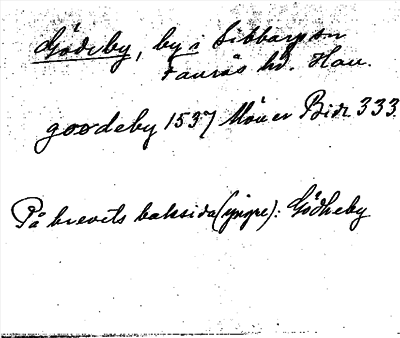 Gödeby, by i Sibbarp sn
Faurås hd. Hall.
goodeby 1537 Möller Bidr 333
På brevets baksida (yngre): Gödheby